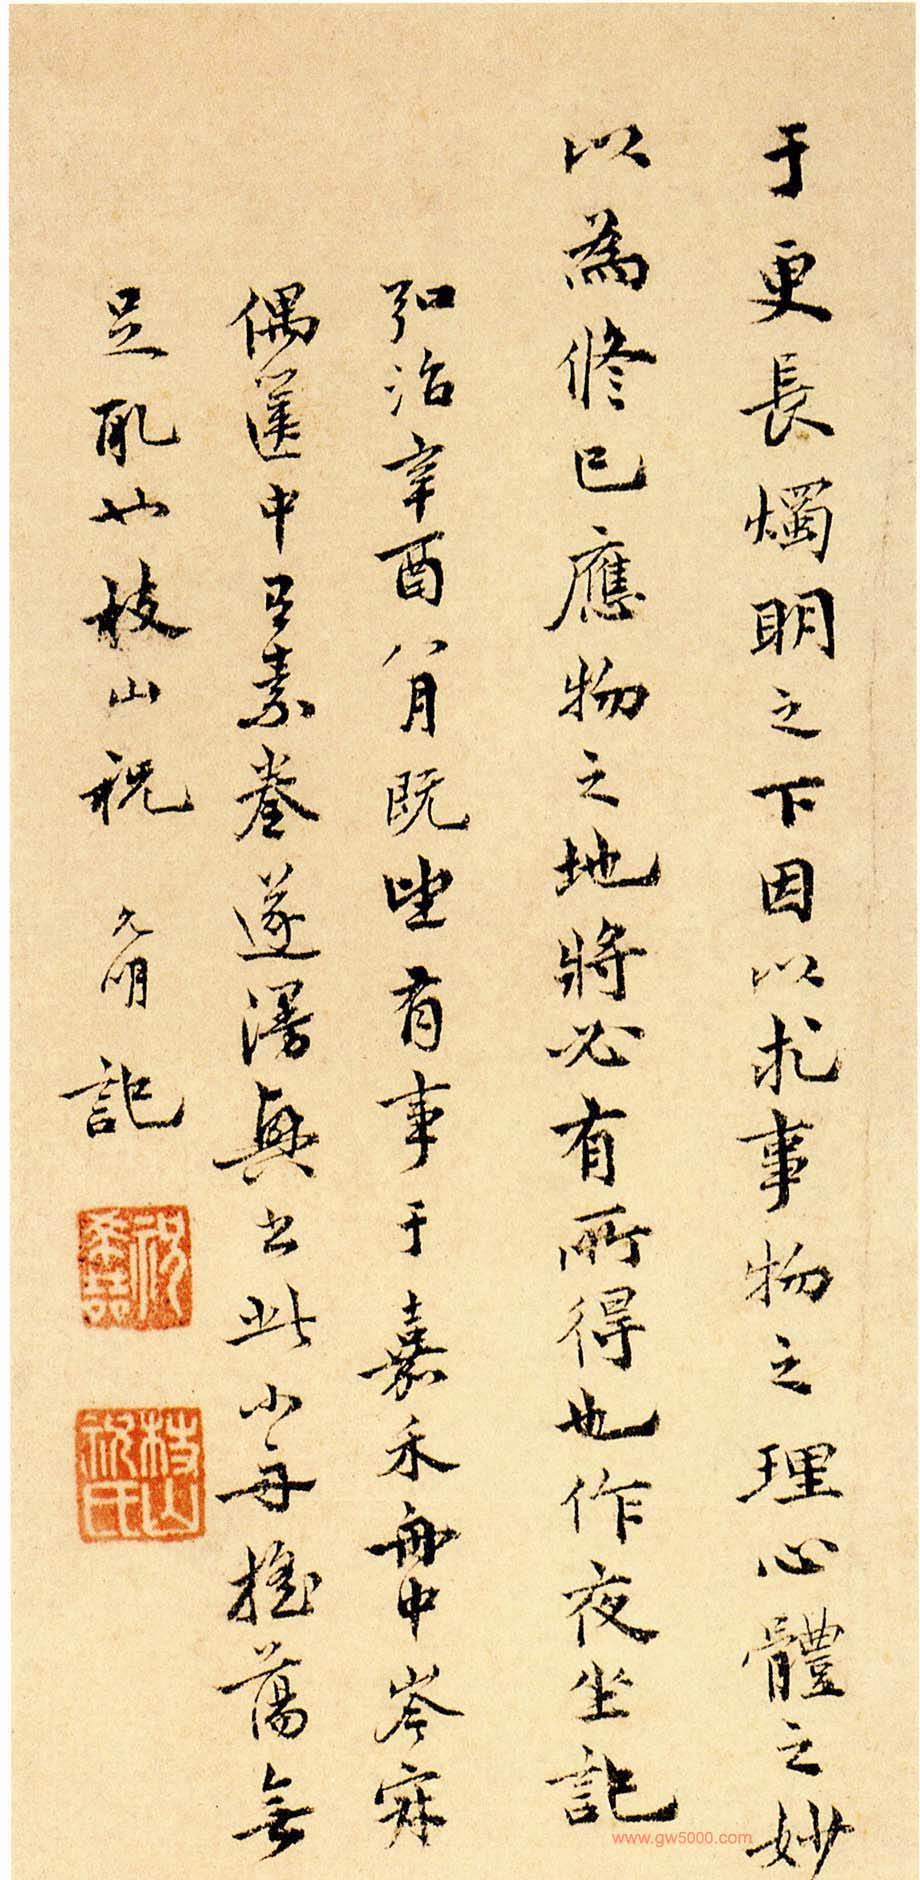 于更長燭明之下因以求事物之理心體之妙
以為修己應物之地將必有所得也作夜坐記
弘治辛酉八月既望有事于嘉禾舟中岑寂
偶篋中有素卷遂漫興書此小舟搖蕩無
足取也枝山祝允明記
祝
枝山祝氏
www.gw5000.com